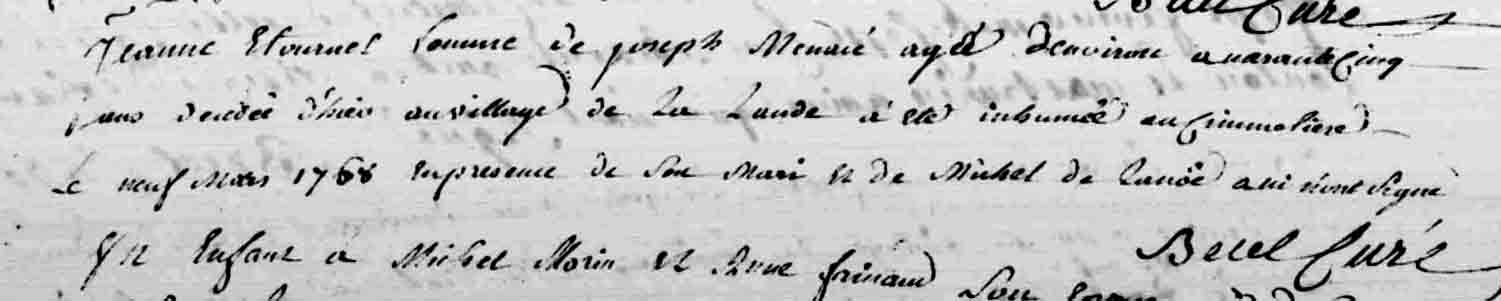 Curé
Jeanne Etournel femme de joseph Menaié agéé denviron quarante Cinq
ans décédée d'hier au village de La Lande à été inhumée au Cimmetiere
Le neuf Mars 1768 En presence de Son Mari Et de Michel de Lanöe qui n'ont Signé
Un Enfant à Michel Morin Et Anne Son
Becel Curé